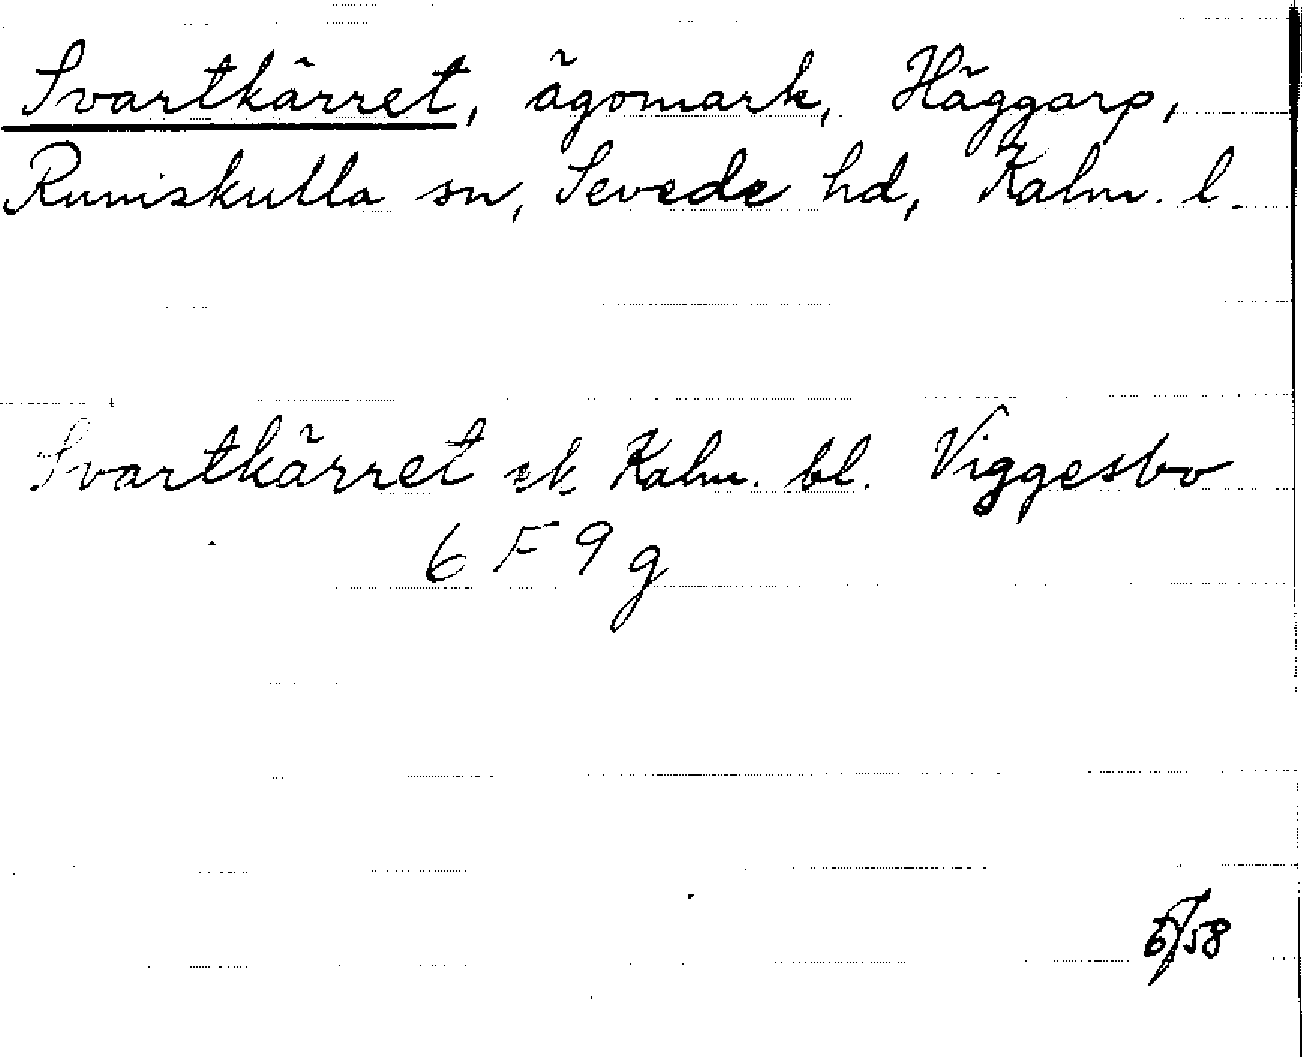 Svartkärret, ägomark, Häggarp,
Rumskulla sn, Sevede hd, Kalm. l.
Svartkärret ek Kalm. bl. Viggesbo
6 F 9 g